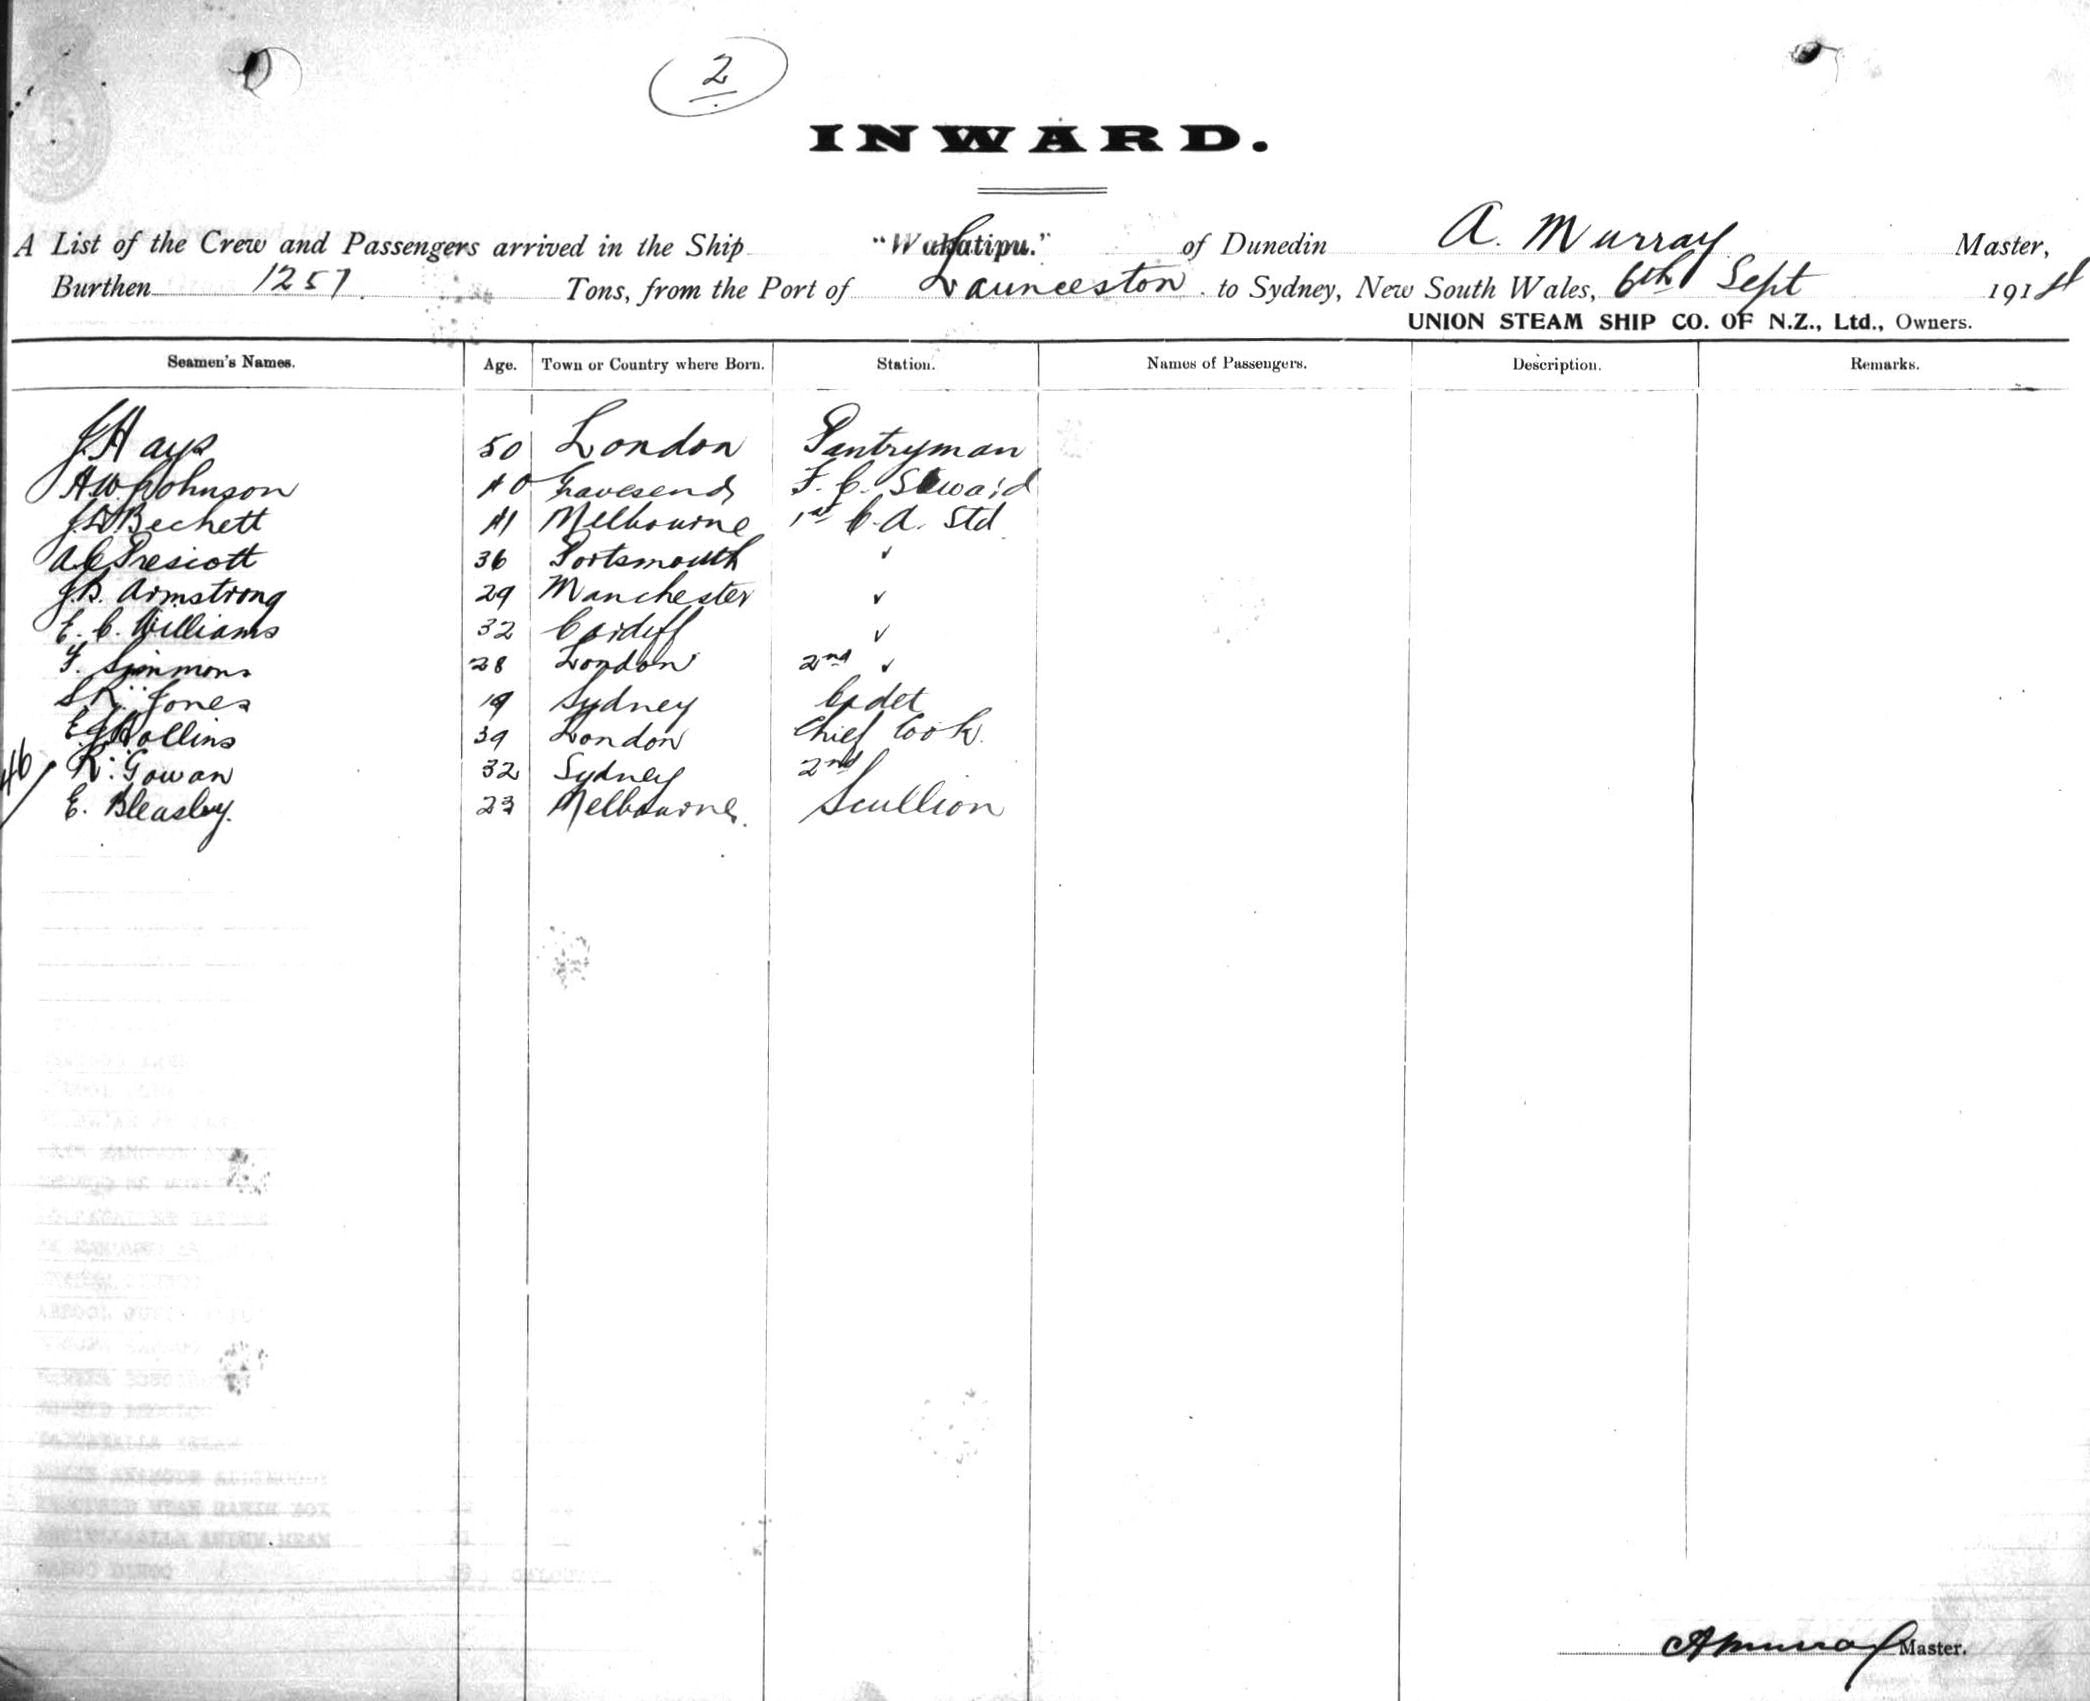 2
INWARD.
A List of the Crew and Passengers arrived in the Ship "Wakatipu." of Dunedin A. Murray Master,
Burthen 1257 Tons, from the Port of Launceston to Sydney, New South Wales, 6th Sept 1914
UNION STEAM SHIP CO. OF N.Z., Ltd., Owners.
Seamen's Names. Age. Town or Country where Born. Station. Names of Passengers. Description. Remarks.
J. Hays 50 London Pantryman
A.W. Johnson 40 Gravesend F. C. Steward
Beckett 41 Melbourne 1st C. A. Std
A.C. Prescott 36 Portsmouth ✓
J.B. Armstrong 29 Manchester ✓
E. C. Williams 32 Cardiff ✓
F. Simmons 28 London 2nd ✓
S.R. Jones 19 Sydney Cadet
Hollins 39 London Chief Cook.
46 R. Gowan 32 Sydney 2nd
E. Bleasley. 23 Melbourne. Scullion
A Murray Master.